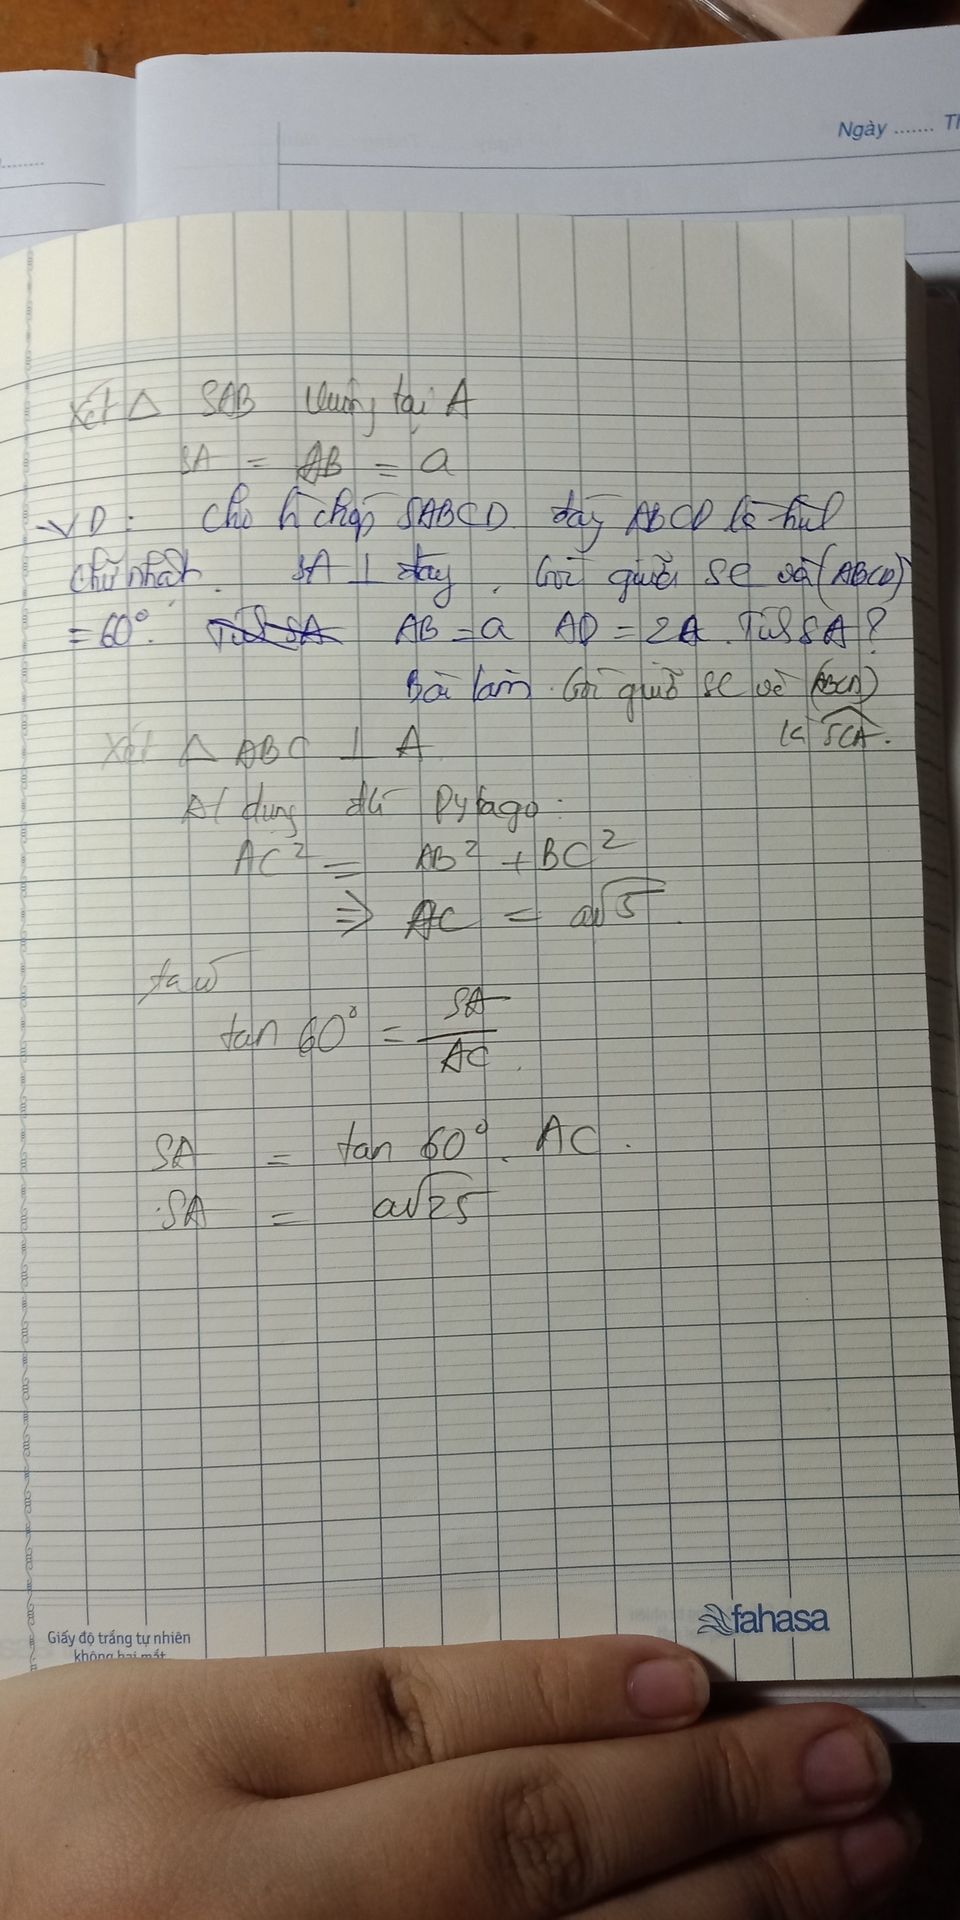 Ngày ....... Th
Xét △ SAB vuông tại A
SA = AB = a
VD: Cho h chóp SABCD. đáy ABCD là hình
chữ nhật. SA ⊥ đáy. Góc giữa SC và (ABCD)
= 60°. Tính SA AB = a AD = 2a. Tính SA?
Bài làm. Góc giữa SC và (ABCD)
là SCA.
Xét △ ABC ⊥ A
Áp dụng đlí Pytago:
AC² = AB² + BC²
⇒ AC = a√5.
ta có
tan 60° = SA/AC.
SA = tan 60°. AC.
SA = a√25
fahasa
Giấy độ trắng tự nhiên
không hại mắt